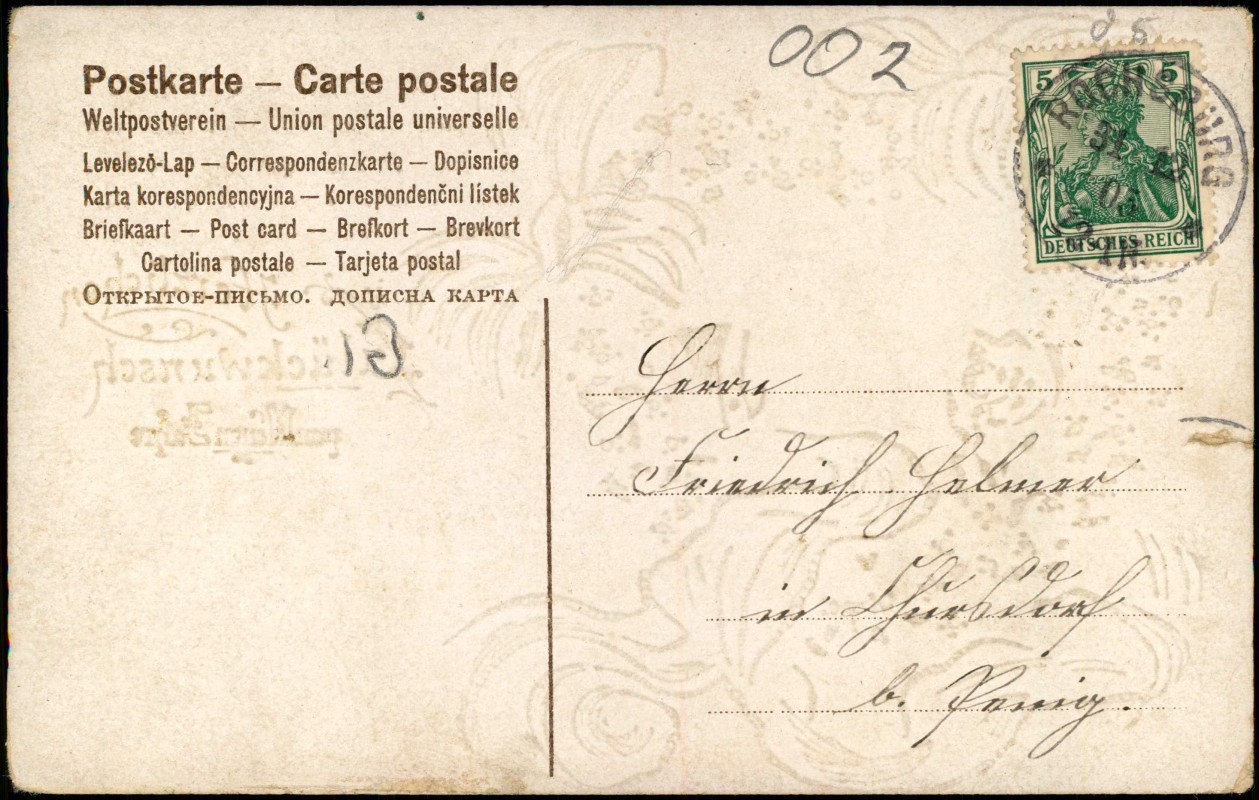 002
Postkarte — Carte postale
Weltpostverein — Union postale universelle
Levelező-Lap — Correspondenzkarte — Dopisnice
Karta korespondencyjna — Korespondenční lístek
Briefkaart — Post card — Brefkort — Brevkort
Cartolina postale — Tarjeta postal
Открытое-письмо. дописна карта
5 5
DEUTSCHES REICH
ROCHSBURG
31 12
05
Glückwunsch
Herrn
Friedrich Helmer
in Chursdorf
b. Penig.